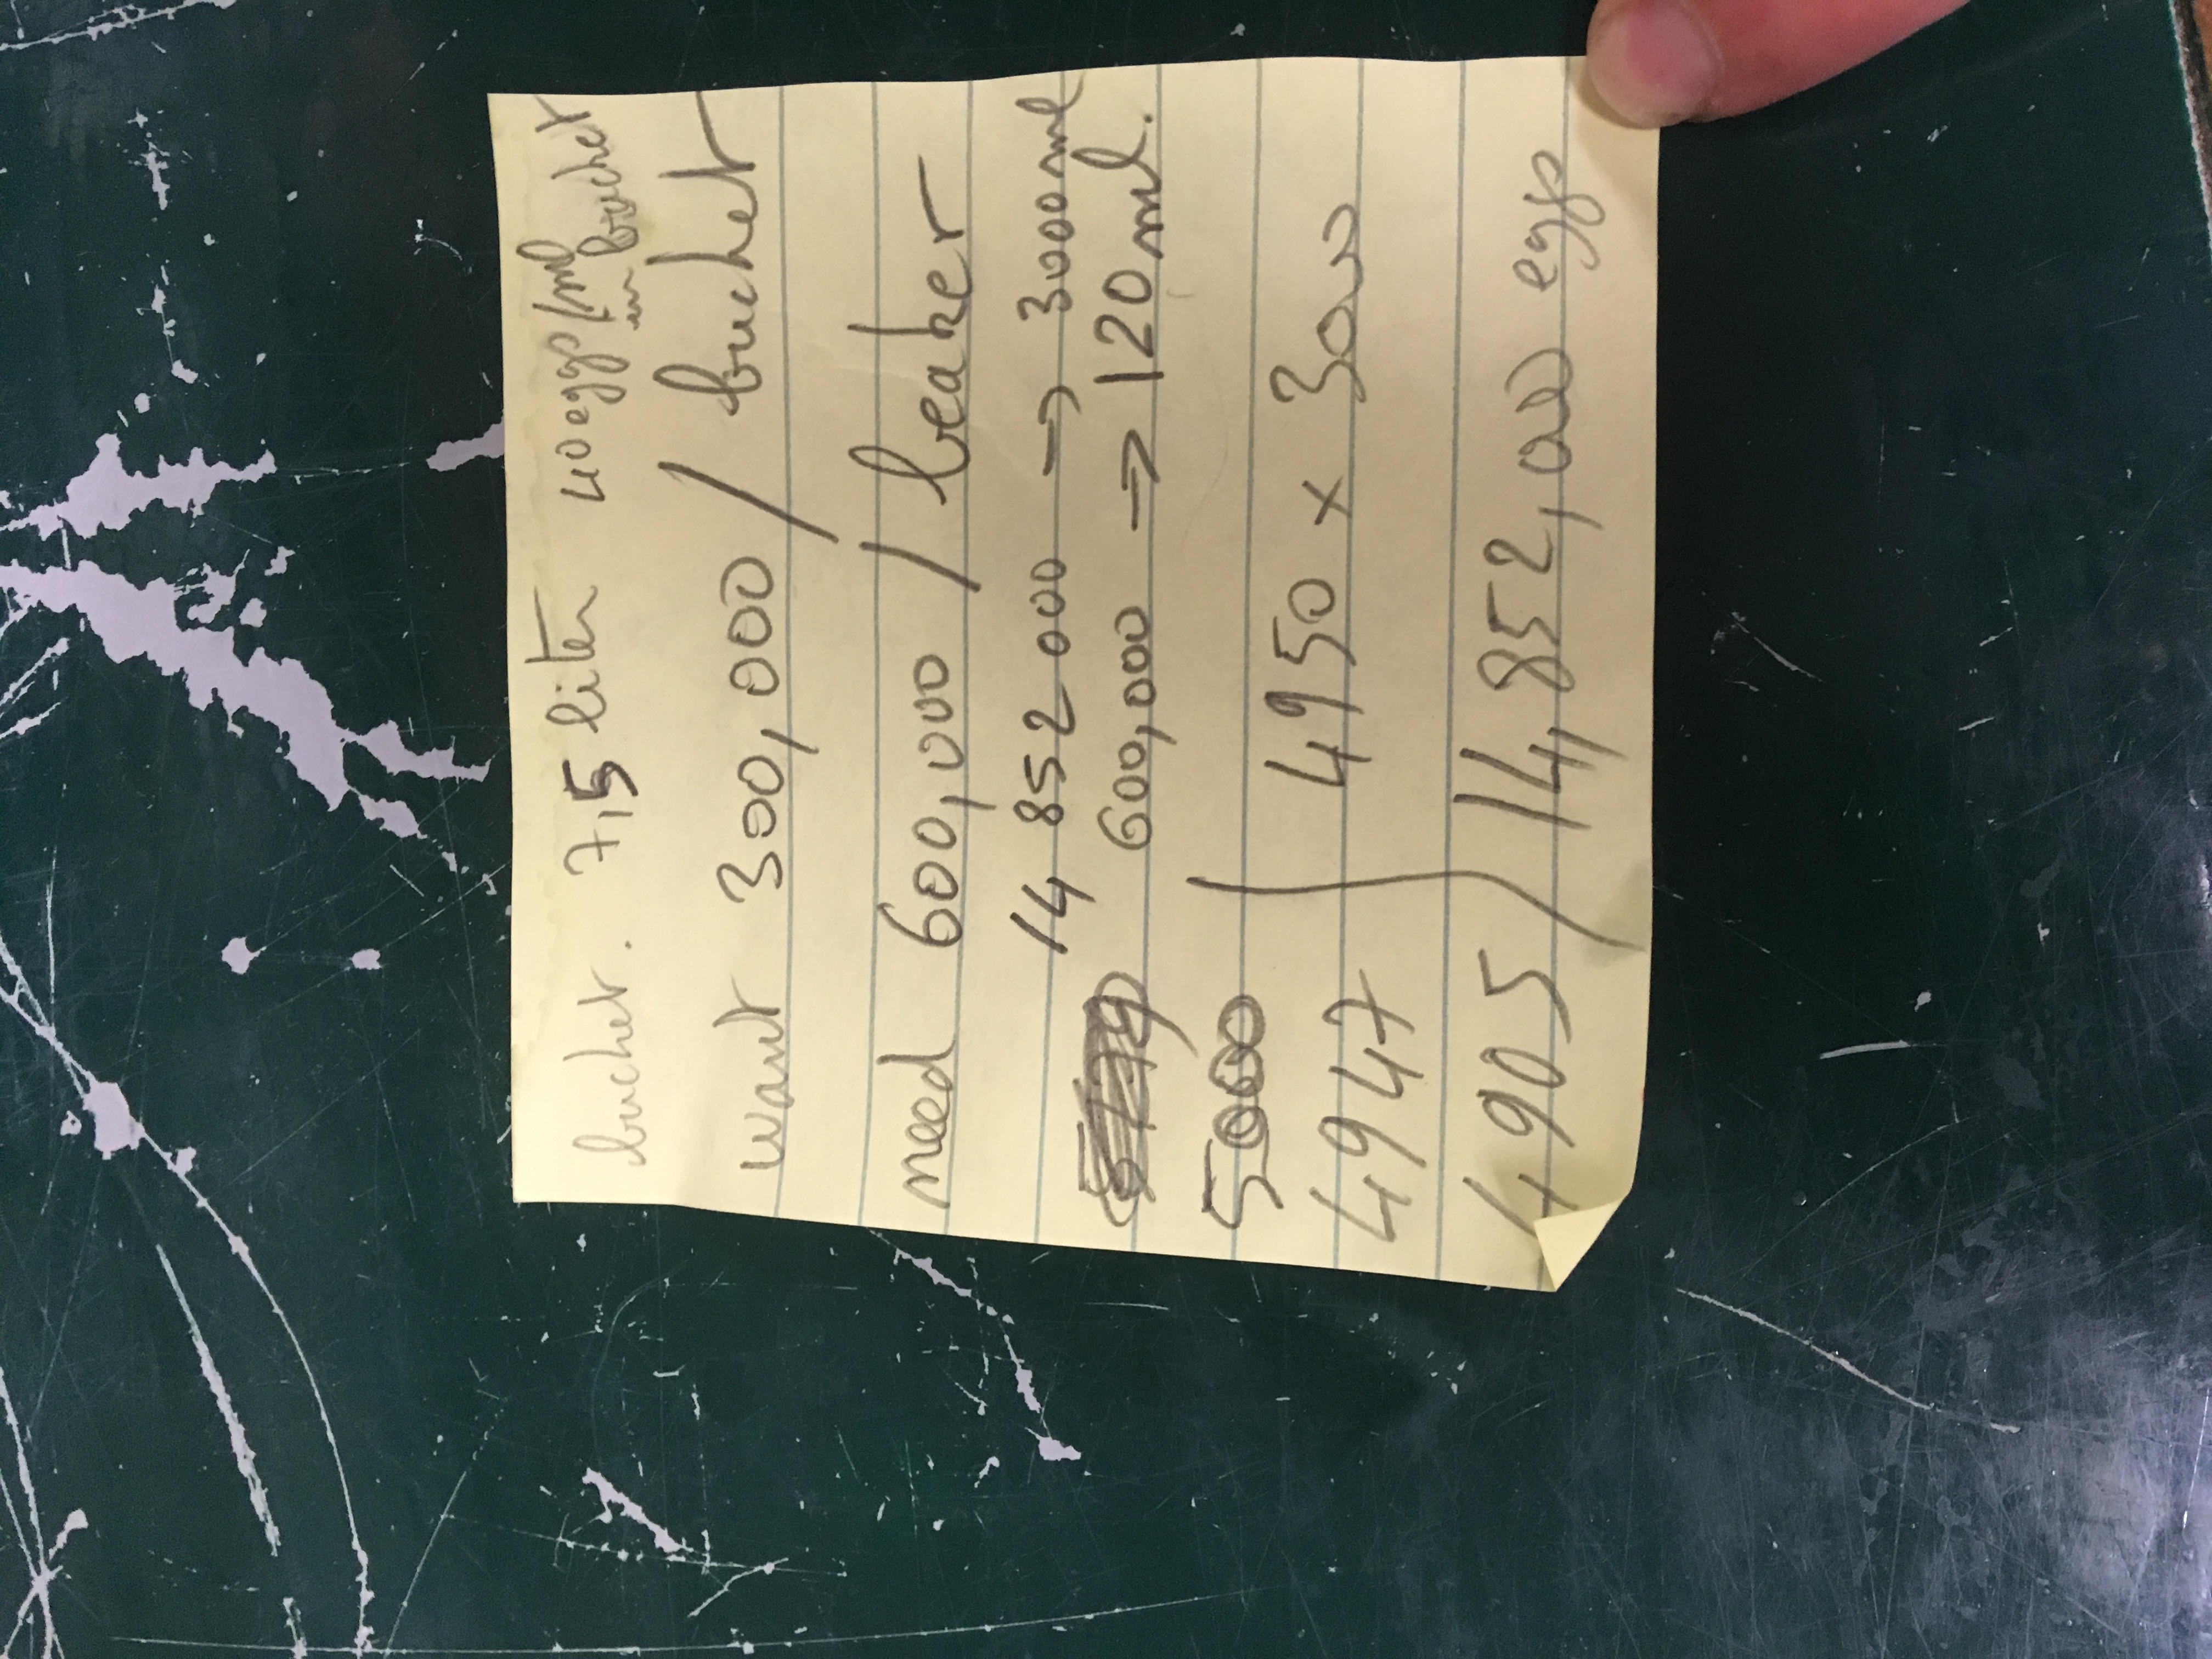 bucket. 7,5 liter 40 eggs/ml
in bucket
want 300,000 / bucket
need 600,000 / beaker
14 852 000 → 3000 ml
600,000 → 120 ml.
5000
4947
4905
4950 x 3000
14,852,000 eggs